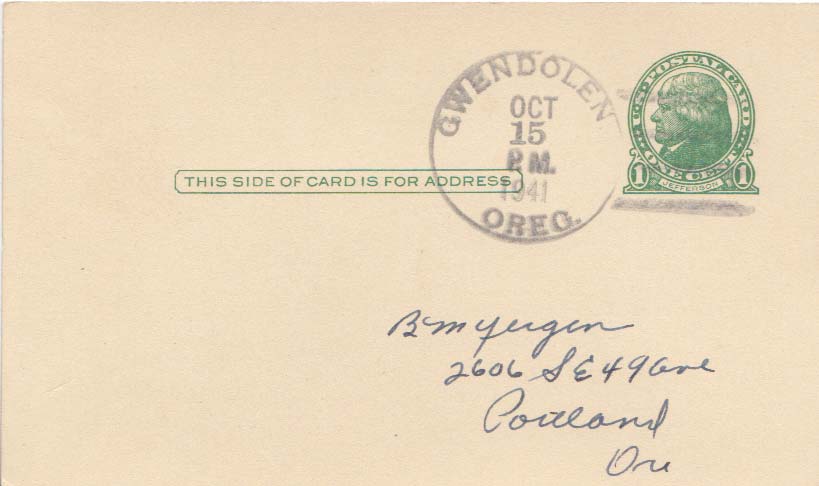 GWENDOLEN
OCT
15
P.M.
1941
OREG.
U.S. POSTAL CARD
1 ONE CENT 1
JEFFERSON
THIS SIDE OF CARD IS FOR ADDRESS
B M Yergen
2606 S E 49 Ave
Portland
Ore